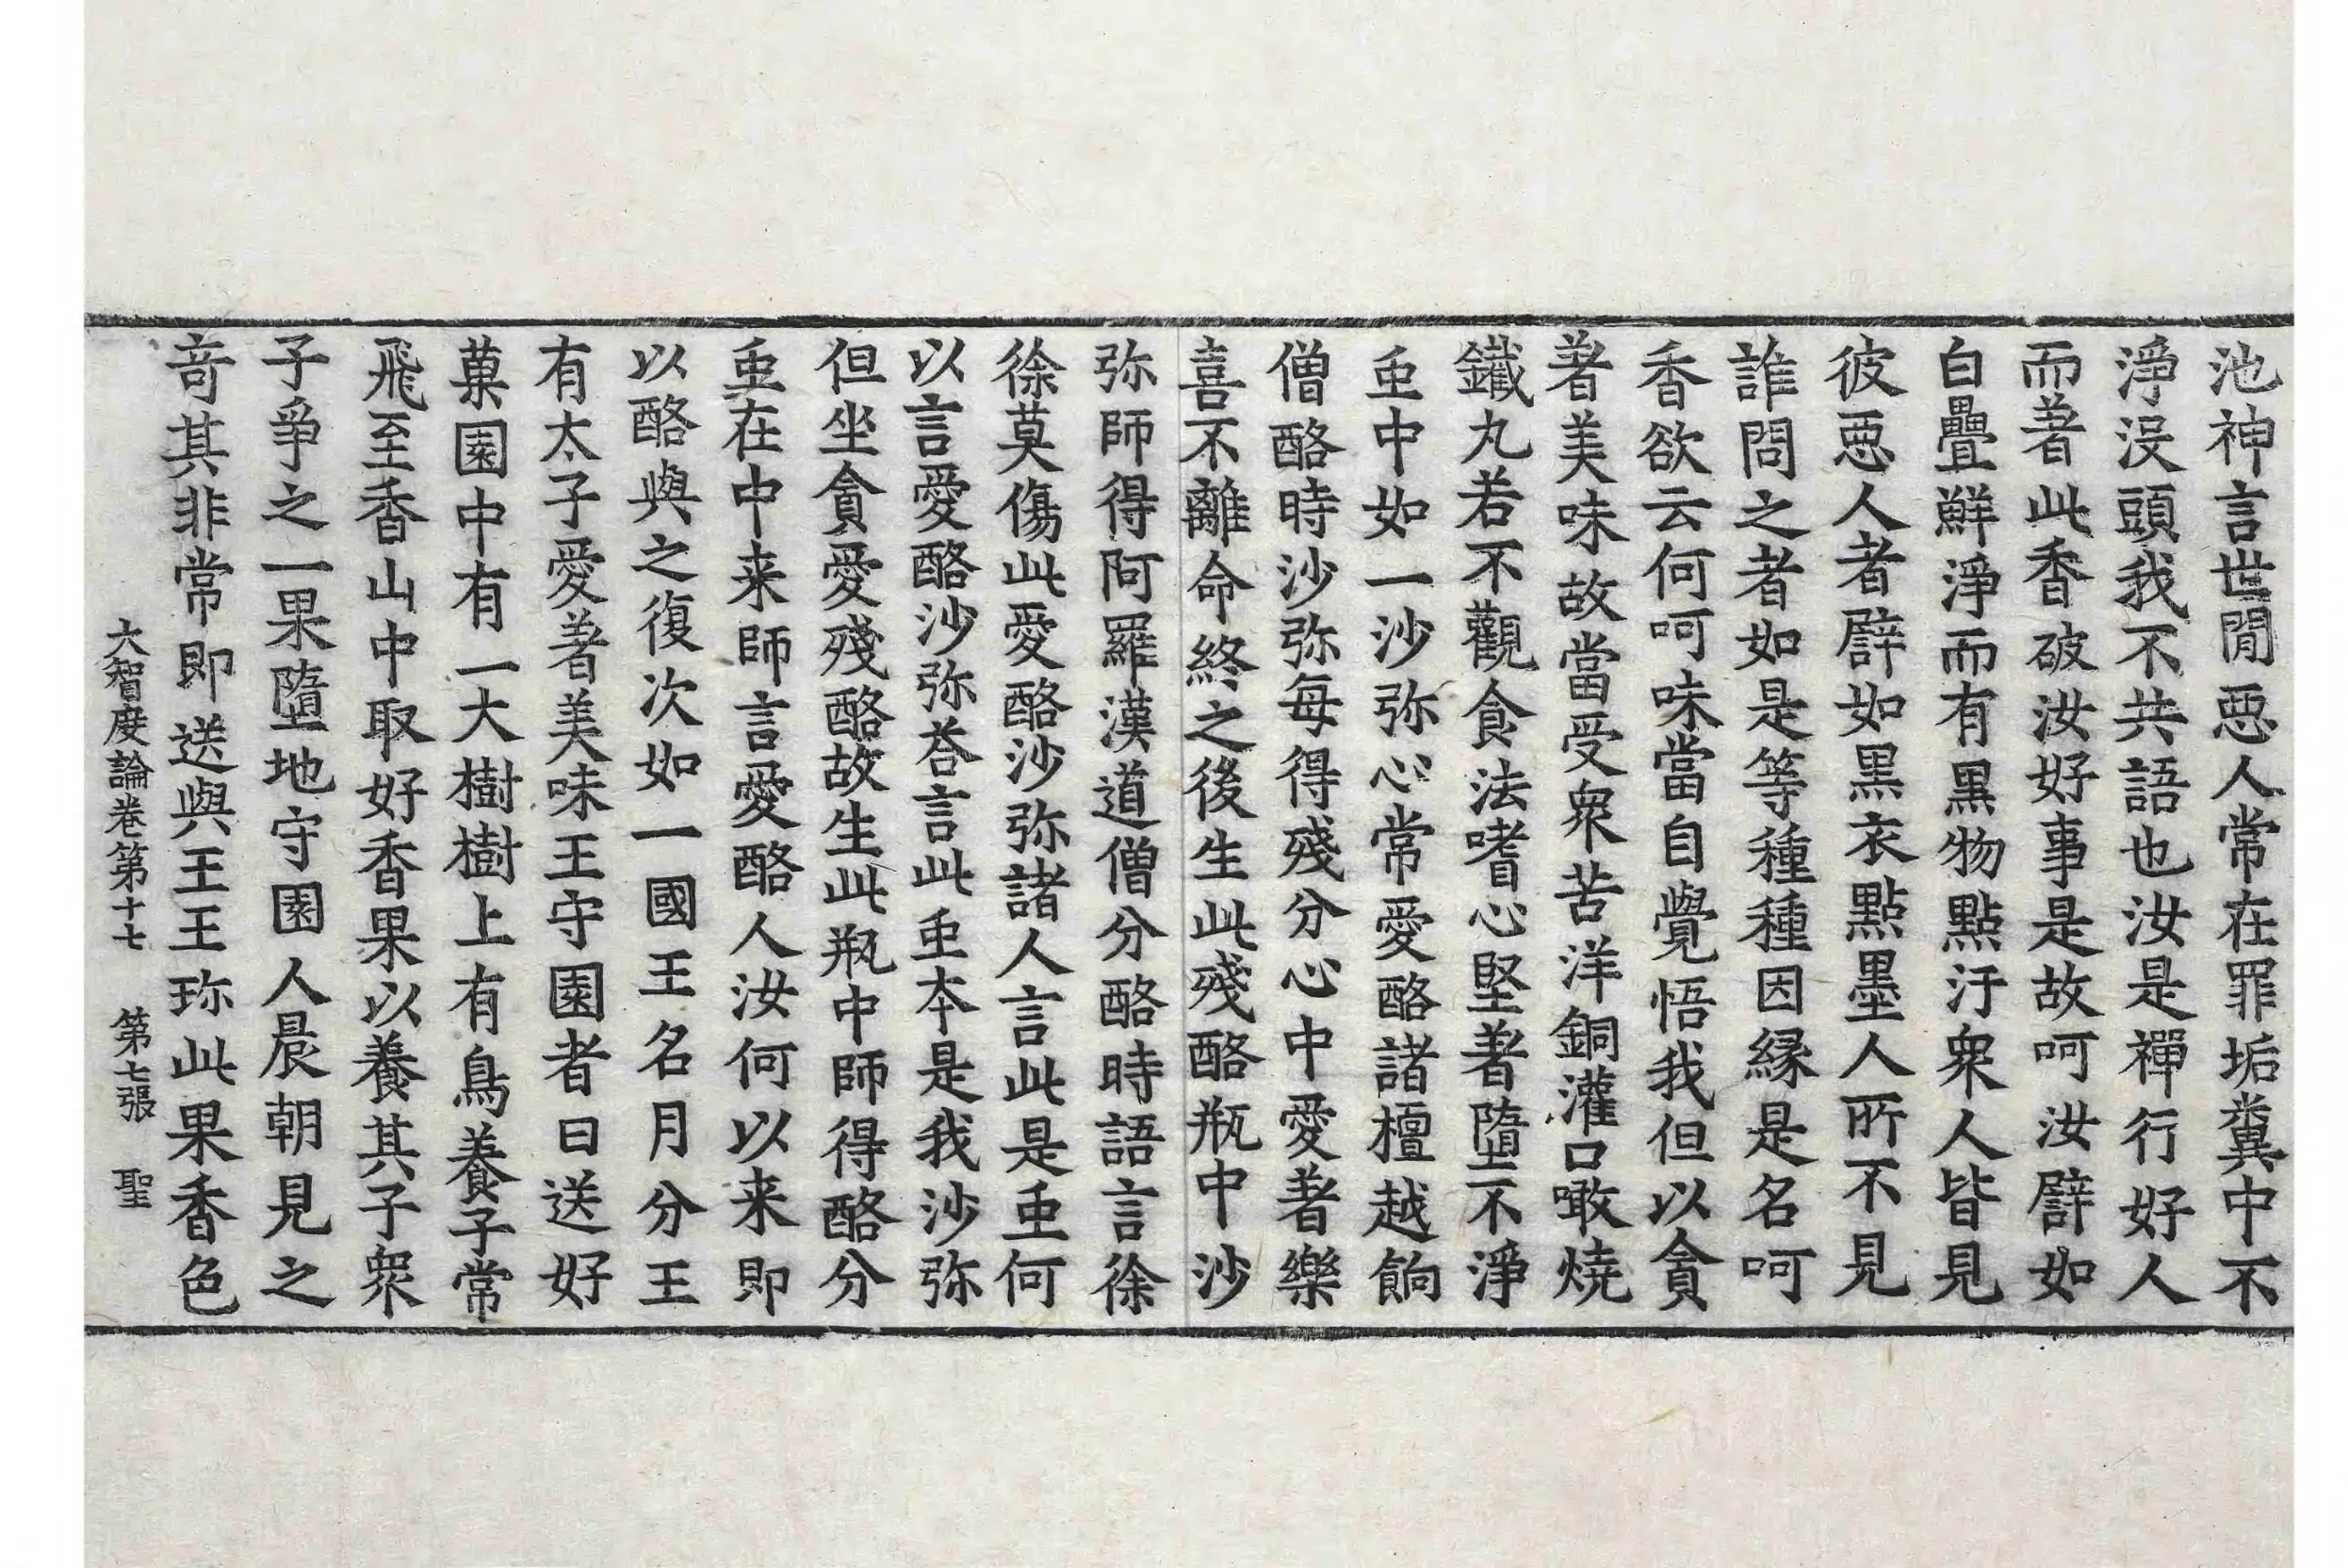 池神言世閒惡人常在罪垢糞中不
淨沒頭我不共語也汝是禪行好人
而著此香破汝好事是故呵汝譬如
白疊鮮淨而有黑物點汙衆人皆見
彼惡人者譬如黑衣點墨人所不見
誰問之者如是等種種因緣是名呵
香欲云何呵味當自覺悟我但以貪
著美味故當受衆苦洋銅灌口噉燒
鐵丸若不觀食法嗜心堅著墮不淨
虫中如一沙弥心常愛酪諸檀越餉
僧酪時沙弥每得殘分心中愛著樂
喜不離命終之後生此殘酪瓶中沙
弥師得阿羅漢道僧分酪時語言徐
徐莫傷此愛酪沙弥諸人言此是虫何
以言愛酪沙弥荅言此虫本是我沙弥
但坐貪愛殘酪故生此瓶中師得酪分
虫在中来師言愛酪人汝何以来即
以酪與之復次如一國王名月分王
有太子愛著美味王守園者日送好
菓園中有一大樹樹上有鳥養子常
飛至香山中取好香果以養其子衆
子爭之一果墮地守園人晨朝見之
奇其非常即送與王王珎此果香色
大智度論卷第十七 第七張 聖